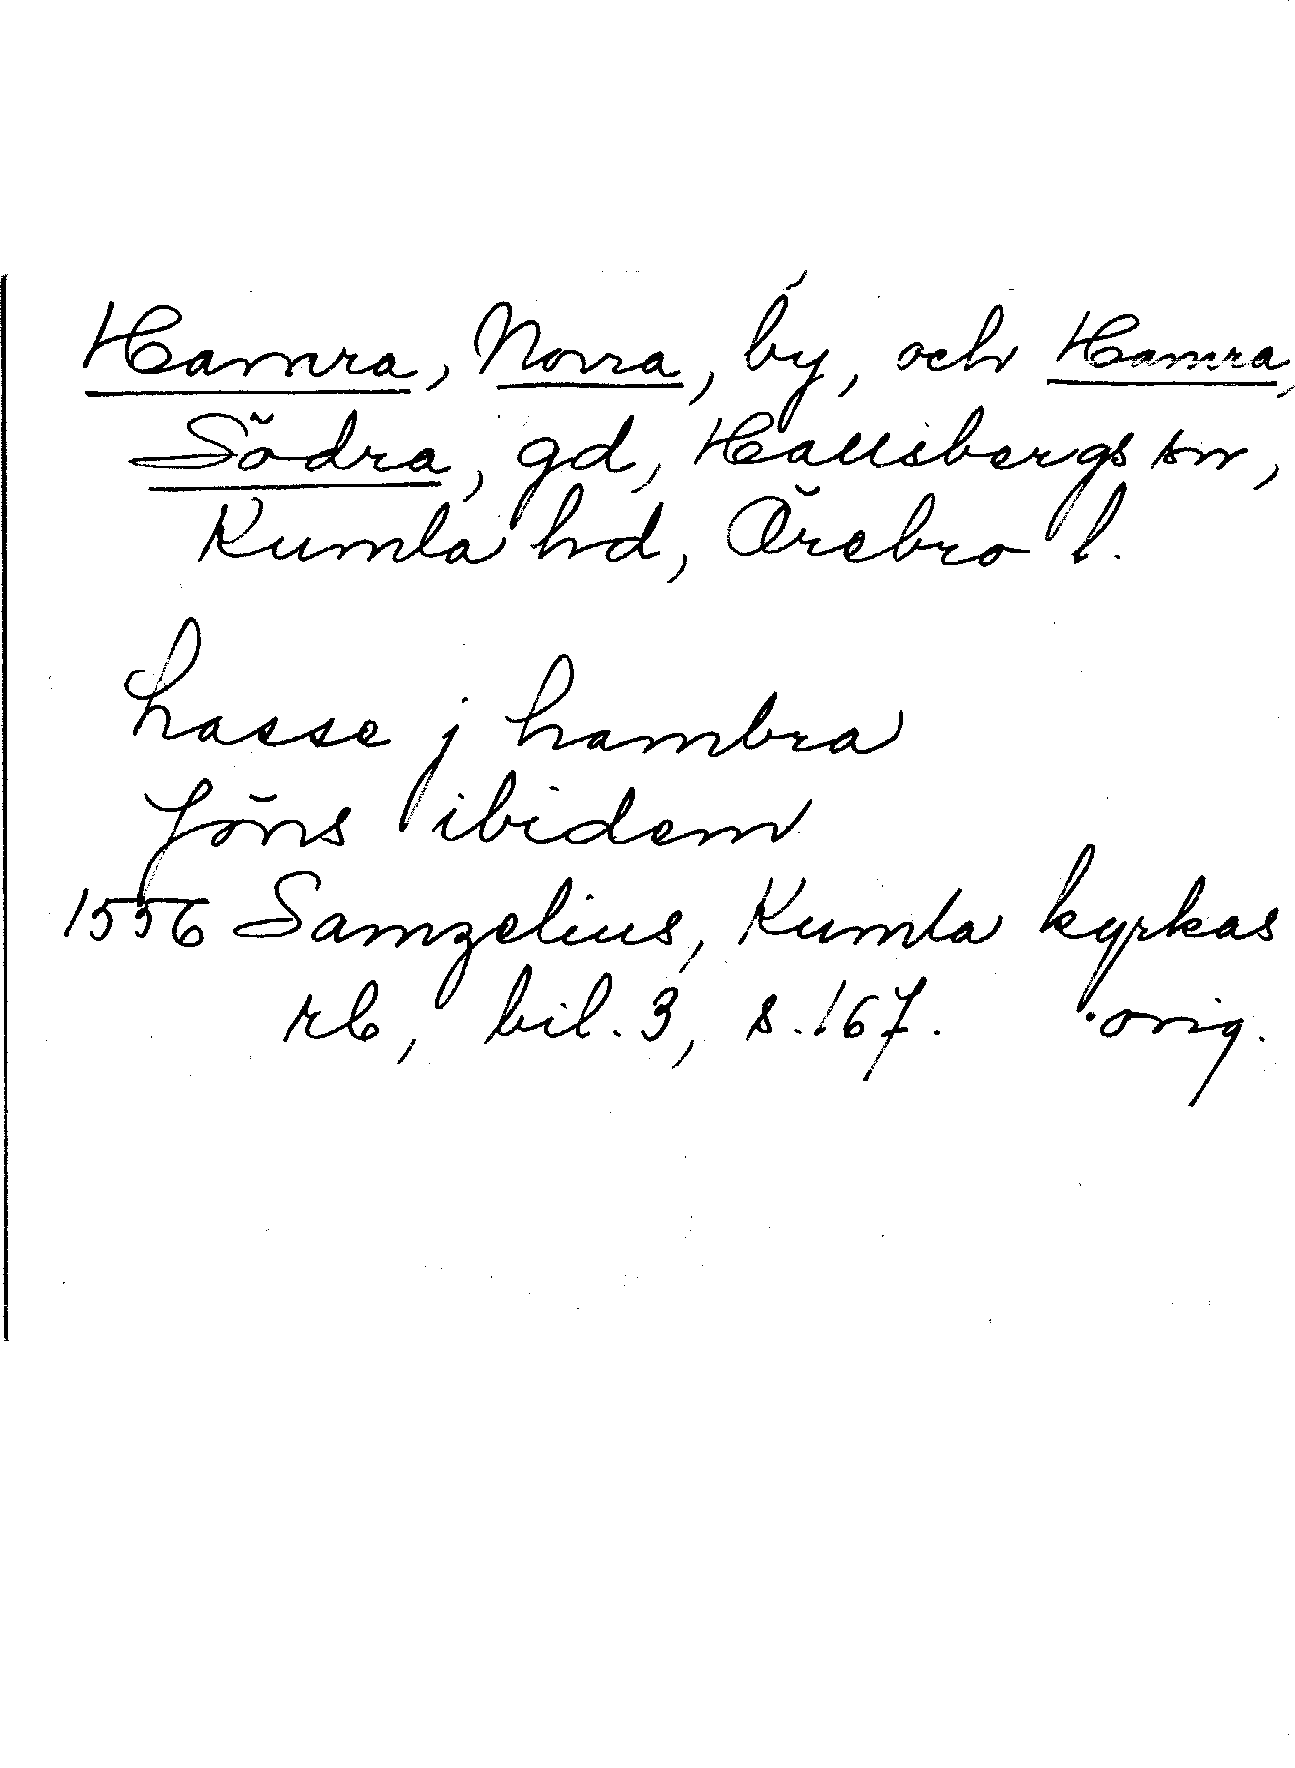 Hamra, Norra, by, och Hamra,
Södra, gd, Hallsbergs sn,
Kumla hd, Örebro l.
Lasse j hambra
Jöns ibidem
1556 Samzelius, Kumla kyrkas
rb, bil. 3, s. 167. orig.